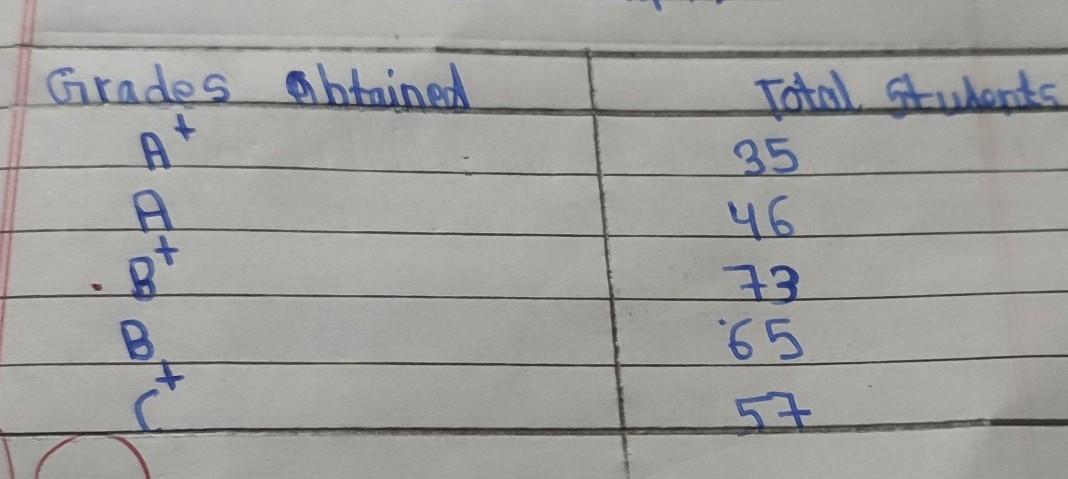 Grades obtained Total Students
A+ 35
A 46
B+ 73
B 65
C+ 57